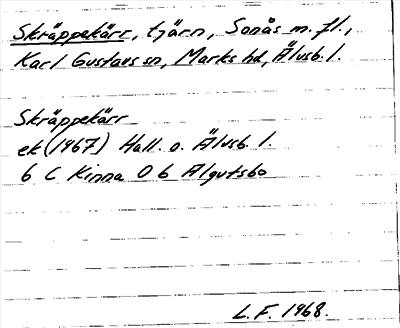 Skräppekärr, tjärn, Sonås m. fl.,
Karl Gustavs sn, Marks hd, Älvsb. l.
Skräppekärr
ek (1967) Hall. o. Älvsb. l.
6 C Kinna 0 b Älgutsbo
L. F. 1968.